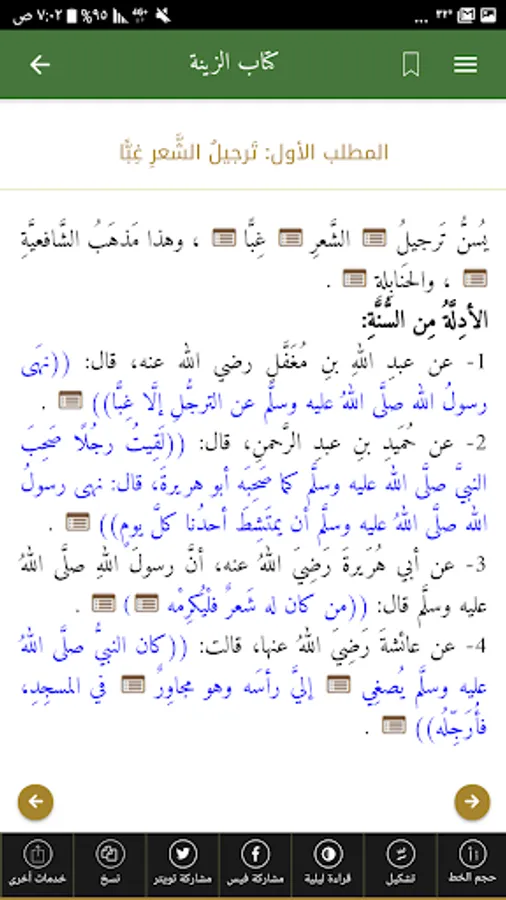 ٧:٠٢ ص ٩٥% 4G+ ٣٣° ...
كتاب الزينة
المطلب الأول: تَرجيلُ الشَّعرِ غِبًّا
يُسنُّ تَرجيلُ الشَّعرِ غِبًّا ، وهذا مَذهَبُ الشَّافعيَّةِ
، والحَنابِلةِ .
الأدِلَّةُ مِن السُّنَّةِ:
1- عن عبدِ اللهِ بنِ مُغَفَّلٍ رضي الله عنه، قال: ((نهَى
رسولُ الله صلَّى اللهُ عليه وسلَّم عن الترجُّلِ إلَّا غِبًّا)) .
2- عن حُمَيدِ بنِ عبدِ الرَّحمنِ، قال: ((لَقِيتُ رجُلًا صَحِبَ
النبيَّ صلَّى الله عليه وسلَّم كما صَحِبَه أبو هريرةَ، قال: نهى رسولُ
الله صلَّى اللهُ عليه وسلَّم أن يمتَشِطَ أحدُنا كلَّ يومٍ)) .
3- عن أبي هُرَيرةَ رَضِيَ اللهُ عنه، أنَّ رسولَ اللهِ صلَّى اللهُ
عليه وسلَّم قال: ((من كان له شَعرٌ فلْيُكرِمْه )) .
4- عن عائشةَ رَضِيَ اللهُ عنها، قالت: ((كان النبيُّ صلَّى اللهُ
عليه وسلَّم يُصغِي إليَّ رأسَه وهو مجاوِرٌ في المسجِدِ،
فأُرَجِّلُه)) .
حجم الخط
تشكيل
قراءة ليلية
مشاركة فيس
مشاركة تويتر
نسخ
خدمات أخرى